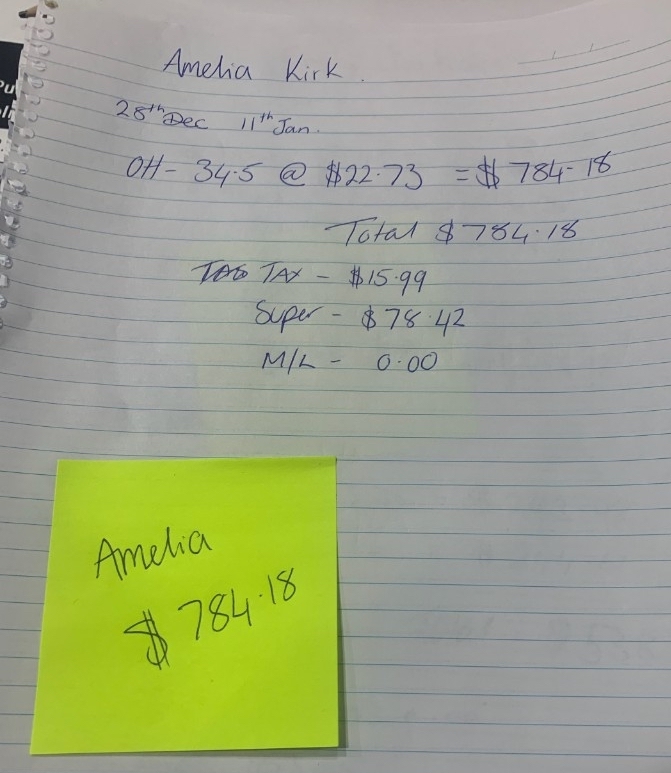 Amelia Kirk.
28th Dec 11th Jan.
OH - 34.5 @ $22.73 = $ 784-18
Total $784.18
TAX - $15.99
Super - $78.42
M/L - 0.00
Amelia
$784.18